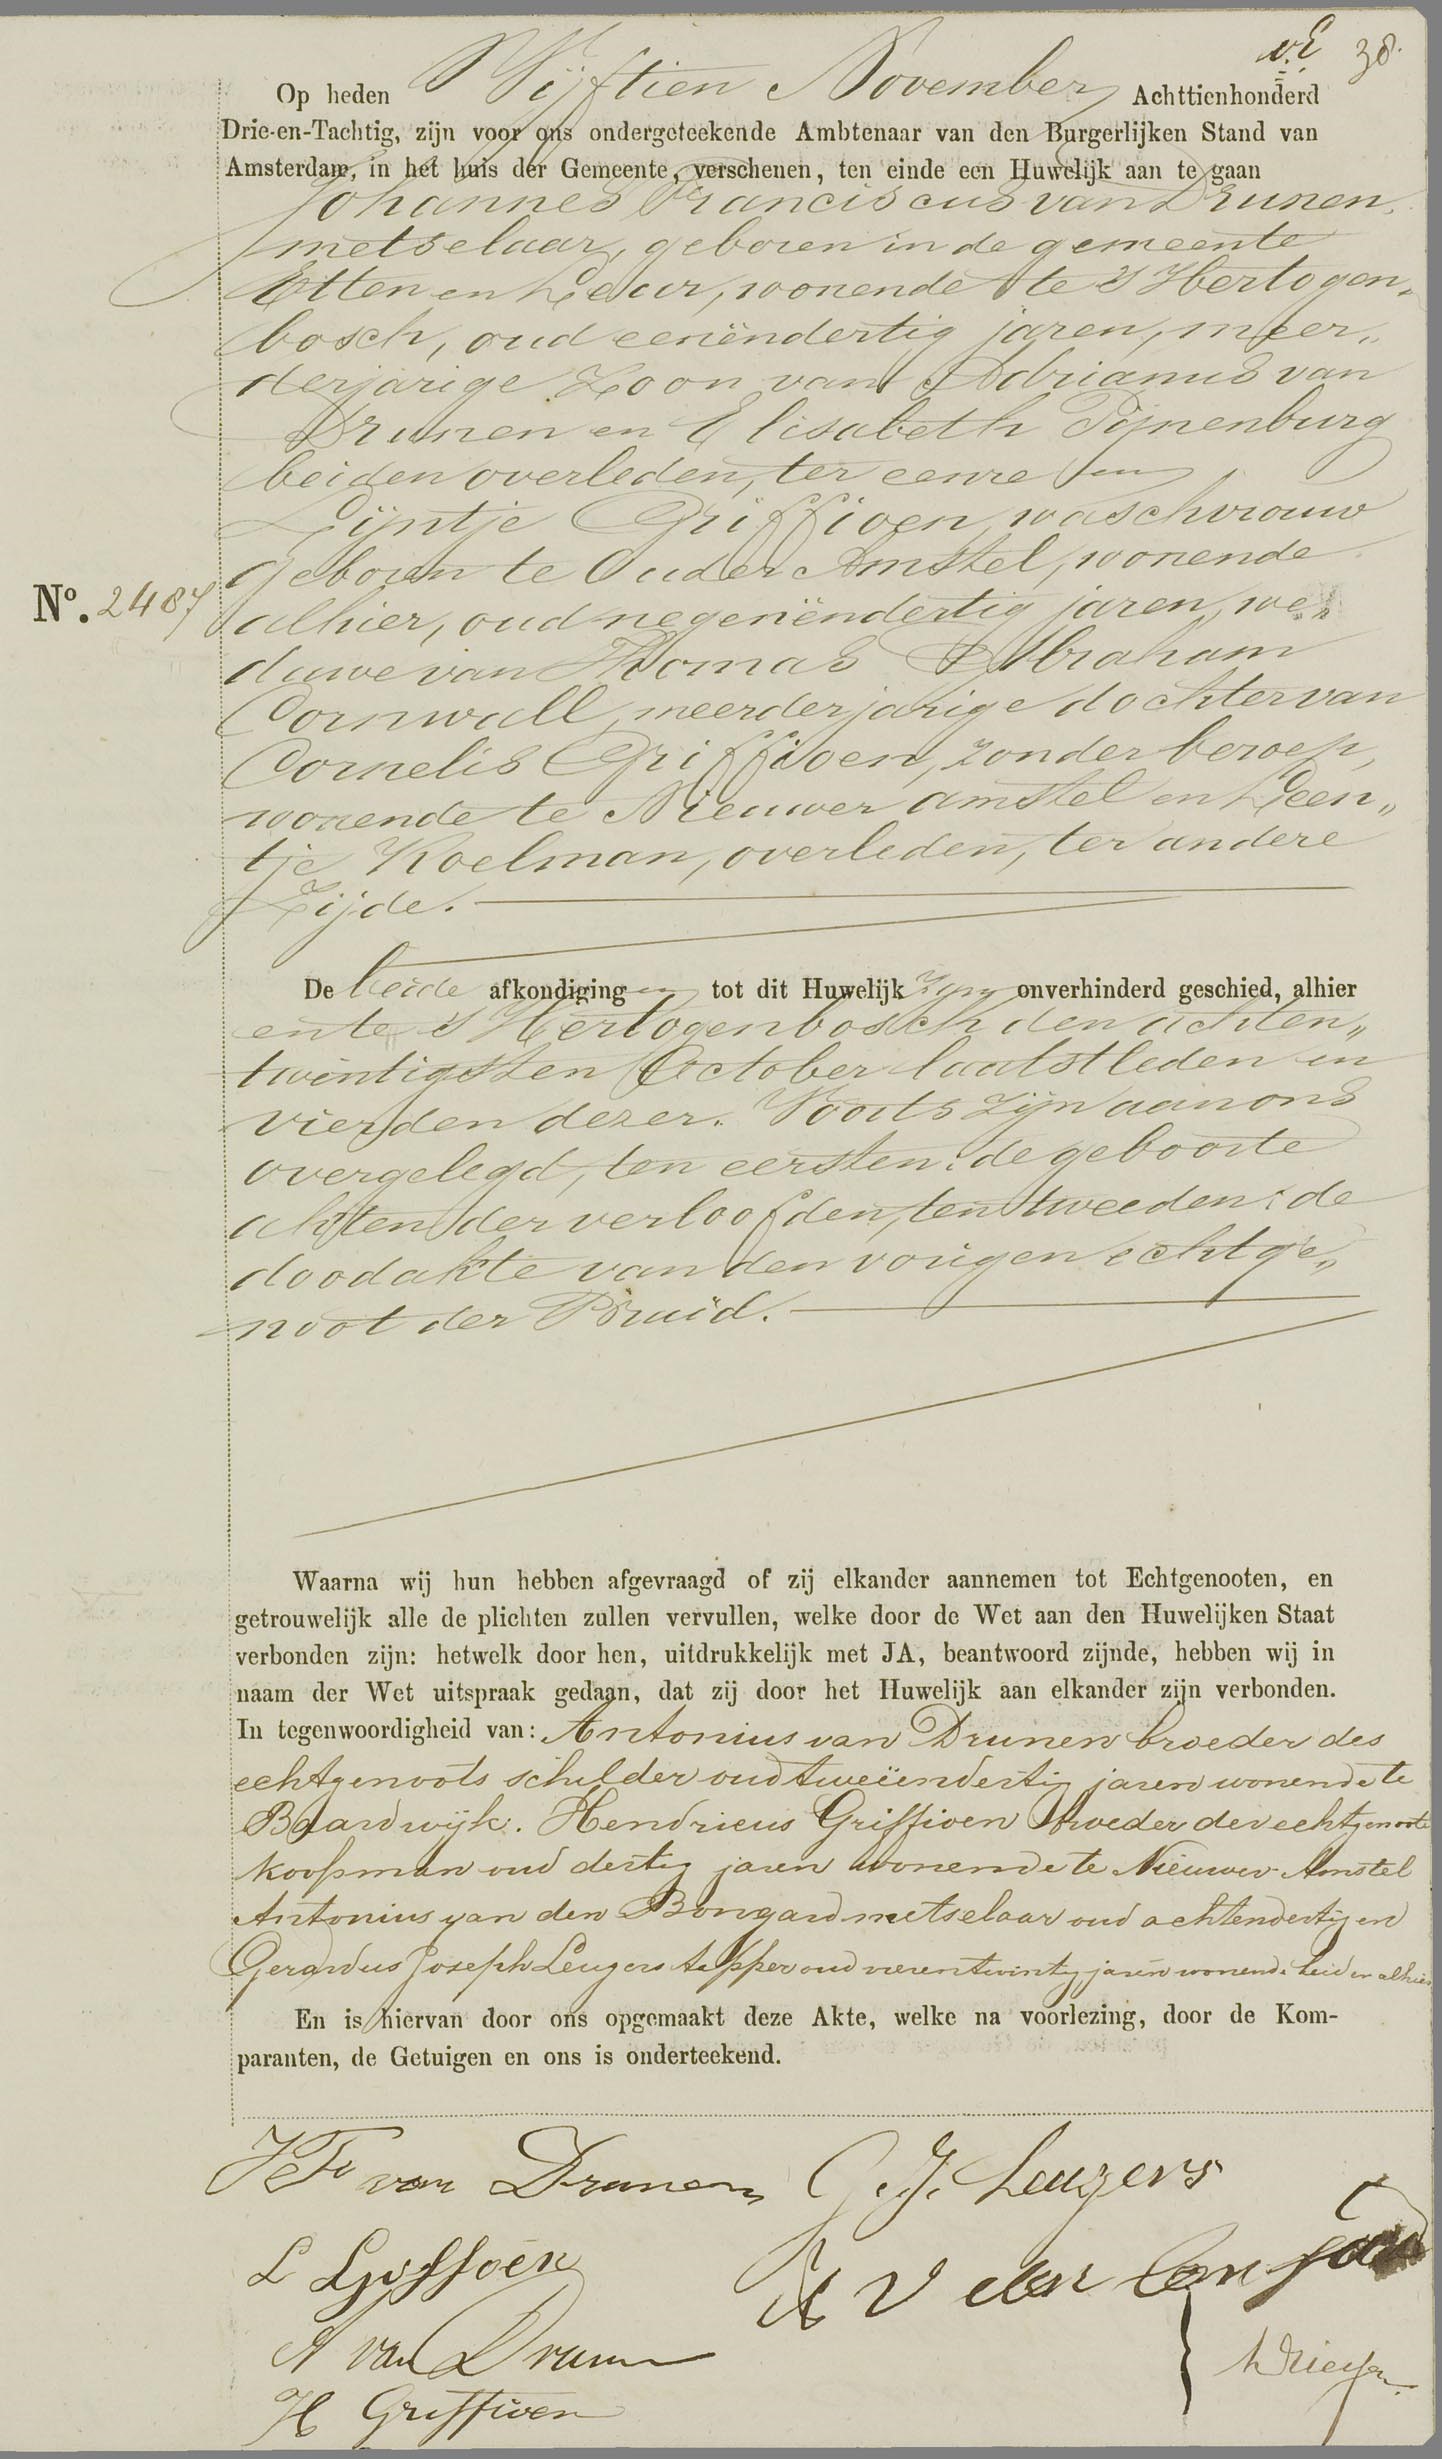 v.E 38.
Op heden Vijftien November Achttienhonderd
Drie-en-Tachtig, zijn voor ons ondergeteekende Ambtenaar van den Burgerlijken Stand van
Amsterdam, in het huis der Gemeente, verschenen, ten einde een Huwelijk aan te gaan
Johannes Franciscus van Drunen,
metselaar, geboren in de gemeente
Etten en Leur, wonende te 's Hertogen„
bosch, oud eenëndertig jaren, meer„
derjarige Zoon van Adrianus van
Drunen en Elisabeth Pijnenburg
beiden overleden, ter eenre en
Lijntje Griffioen, waschvrouw
geboren te Ouder Amstel, wonende
No. 2487
alhier, oud negenëndertig jaren, we„
duwe van Thomas Abraham
Cornwall, meerderjarige dochter van
Cornelis Griffioen, zonder beroep,
wonende te Nieuwer amstel en Leen„
tje Koelman, overleden, ter andere
Zijde.
De beide afkondigingen tot dit Huwelijk zijn onverhinderd geschied, alhier
en te 's Hertogenbosch den achten„
twintigsten October laatstleden en
vierden dezer. Voorts zijn aan ons
overgelegd, ten eersten: de geboorte
akten der verloofden, ten tweeden: de
doodakte van den vorigen echtge„
noot der Bruid.
Waarna wij hun hebben afgevraagd of zij elkander aannemen tot Echtgenooten, en
getrouwelijk alle de plichten zullen vervullen, welke door de Wet aan den Huwelijken Staat
verbonden zijn: hetwelk door hen, uitdrukkelijk met JA, beantwoord zijnde, hebben wij in
naam der Wet uitspraak gedaan, dat zij door het Huwelijk aan elkander zijn verbonden.
In tegenwoordigheid van: Antonius van Drunen broeder des
echtgenoots schilder oud tweeëndertig jaren wonende te
Baardwijk. Hendricus Griffioen broeder der echtgenoote
koopman oud dertig jaren wonende te Nieuwer-Amstel
Antonius van den Bongard metselaar oud achtendertig en
Gerardus Joseph Leugers tapper oud vierentwintig jaren wonende beiden alhier
En is hiervan door ons opgemaakt deze Akte, welke na voorlezing, door de Kom-
paranten, de Getuigen en ons is onderteekend.
J F van Drunen G. J. Leugers
L Griffioen
A v den bongard
A van Drunen
H Griffioen